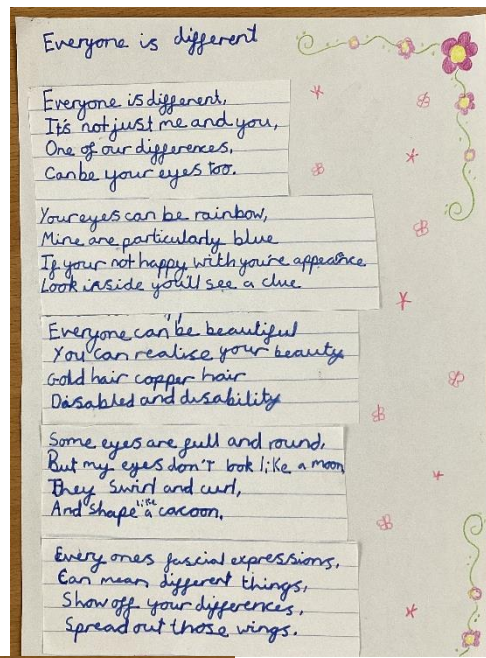 Everyone is different
Everyone is different,
It's not just me and you,
One of our differences,
Can be your eyes too.
Your eyes can be rainbow,
Mine are particularly blue
If your not happy with you're appearance
Look inside you'll see a clue
Everyone can be beautiful
You can realise your beauty
Gold hair copper hair
Disabled and disability
Some eyes are full and round,
But my eyes don't look like a moon
They swirl and curl,
And shape like a cacoon.
Every ones fascial expressions,
Can mean different things,
Show off your differences,
Spread out those wings.